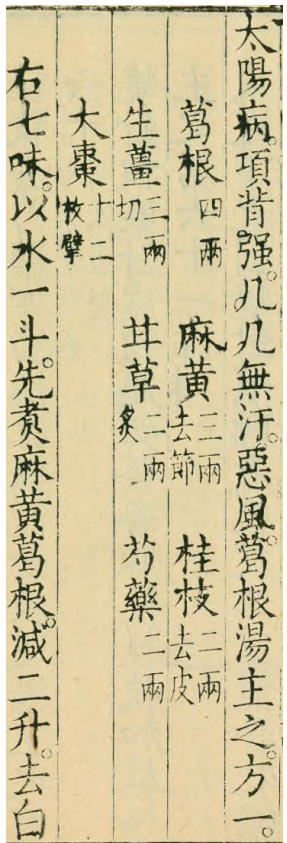 太陽病。項背强。几几無汗。惡風。葛根湯主之。方一。
葛根四兩　麻黃三兩去節　桂枝二兩去皮
生薑三兩切　甘草二兩炙　芍藥二兩
大棗十二枚擘
右七味。以水一斗。先煑麻黃葛根。減二升。去白